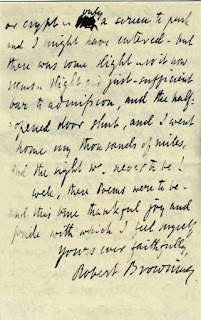 only
or crypt, .. a screen to push
and I might have entered - but
there was some slight .. so it now
seems .. slight and just-sufficient
bar to admission, and the half-
opened door shut, and I went
home my thousands of miles,
and the sight was never to be!
Well, these Poems were to be -
and this true thankful joy and
pride with which I feel myself
Yours ever faithfully,
Robert Browning.